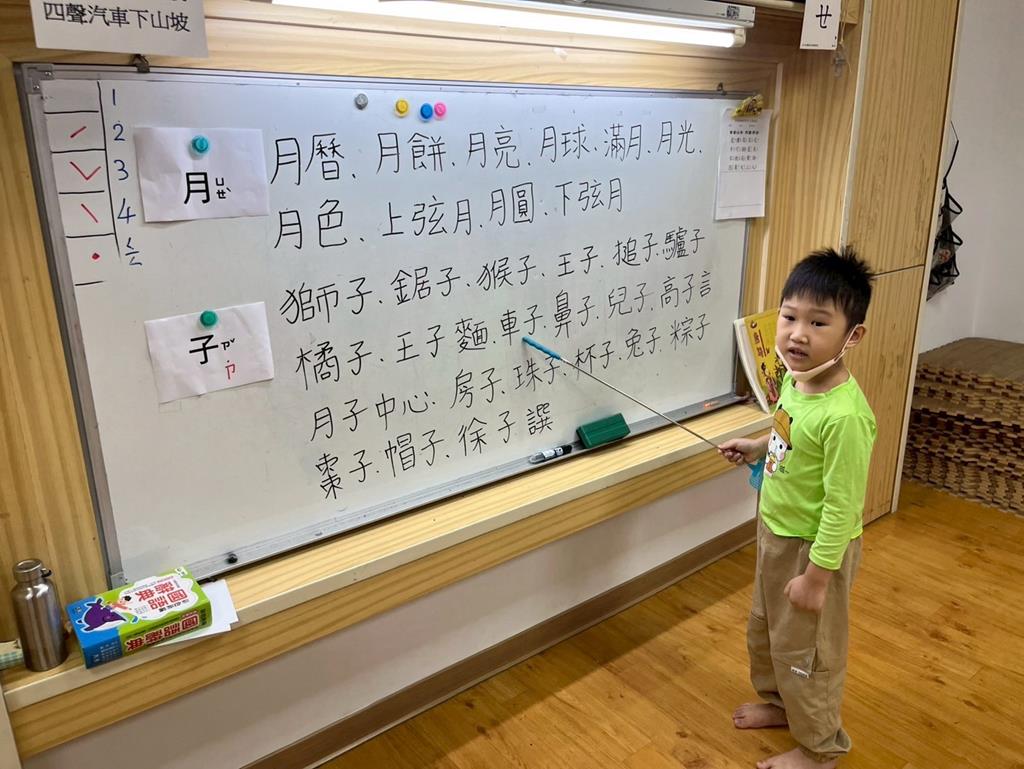 四聲汽車下山坡
ㄝ
1
2
3
4
ㄑㄥ
月ㄩㄝˋ
月曆、月餅、月亮、月球、滿月、月光、
月色、上弦月、月圓、下弦月
獅子、鋸子、猴子、王子、搥子、驢子
子ㄗˇ
ㄗ
橘子、王子麵、車子、鼻子、兒子、高子言
月子中心、房子、珠子、杯子、兔子、粽子
棗子、帽子、徐子譔